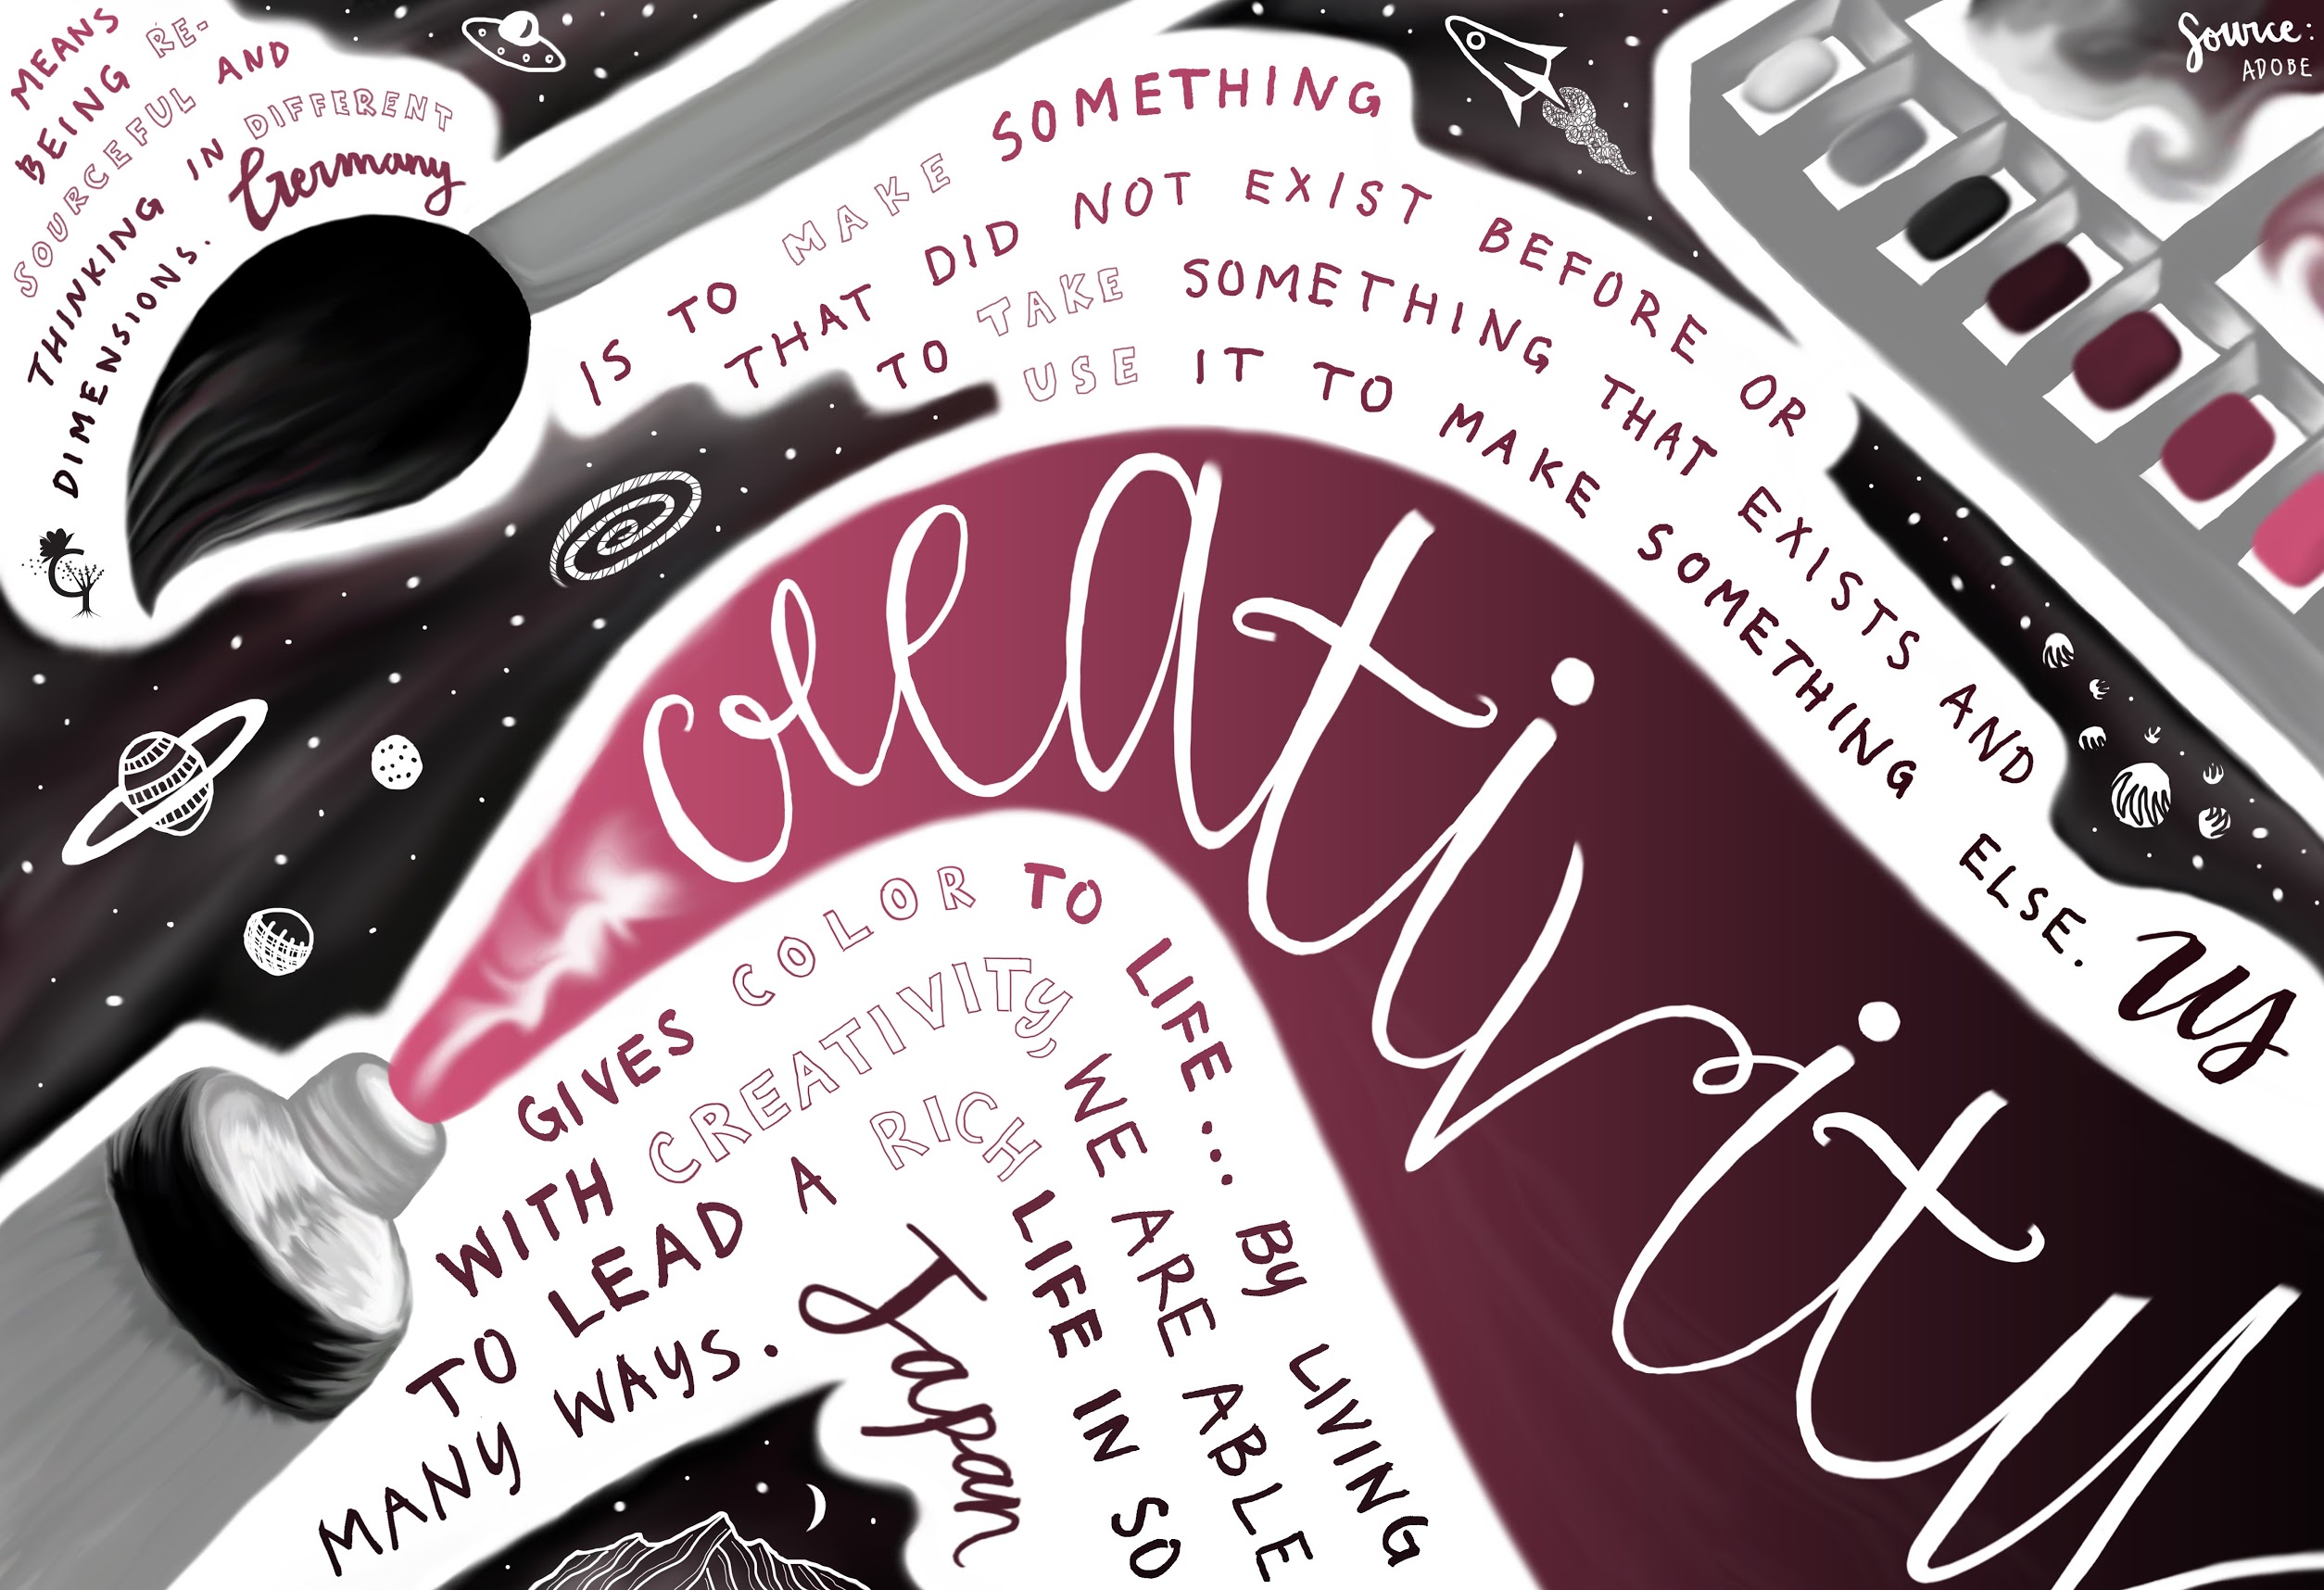 MEANS
BEING RE-
SOURCEFUL AND
THINKING IN DIFFERENT
DIMENSIONS. Germany
Source:
ADOBE
IS TO MAKE SOMETHING
THAT DID NOT EXIST BEFORE OR
TO TAKE SOMETHING THAT EXISTS AND
USE IT TO MAKE SOMETHING ELSE. US
creativity
GIVES COLOR TO LIFE... BY LIVING
WITH CREATIVITY WE ARE ABLE
TO LEAD A RICH LIFE IN SO
MANY WAYS. Japan